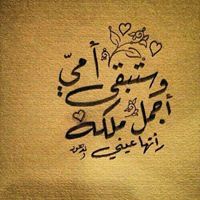 وستبقى أُميّ
أجمل ملكه
رأتها عيني